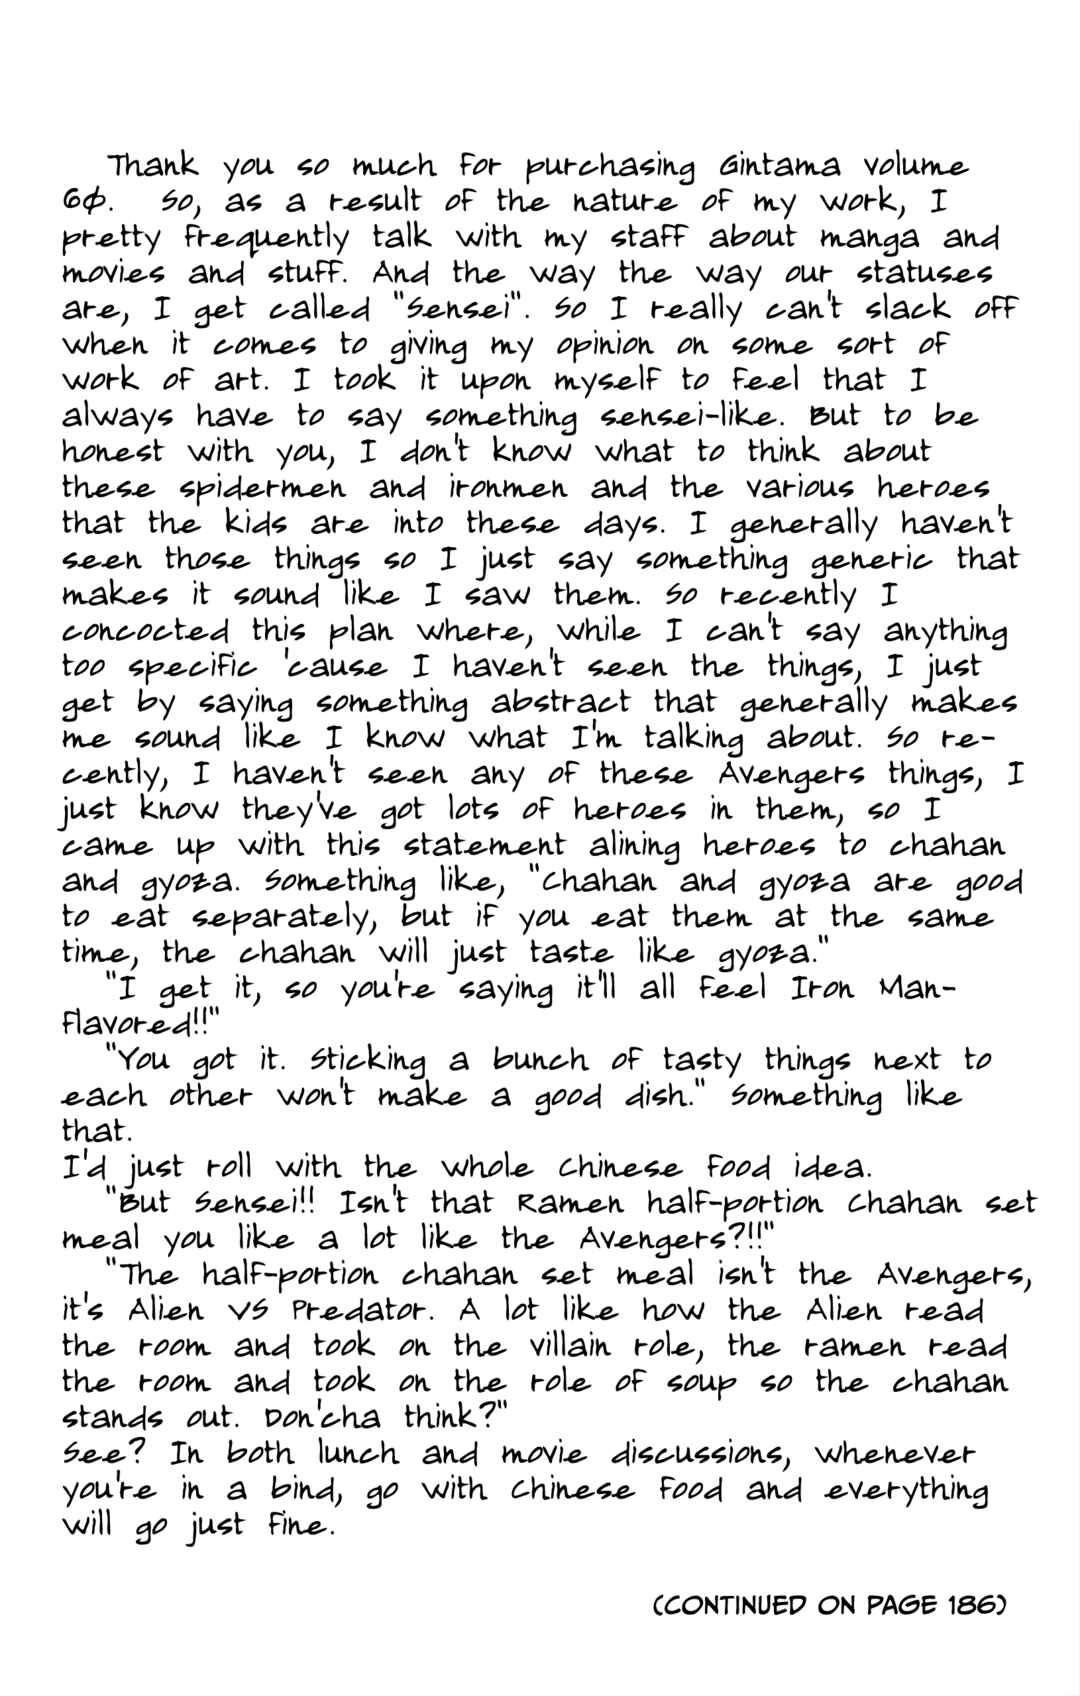 Thank you so much for purchasing Gintama volume
60. So, as a result of the nature of my work, I
pretty frequently talk with my staff about manga and
movies and stuff. And the way the way our statuses
are, I get called "Sensei". So I really can't slack off
when it comes to giving my opinion on some sort of
work of art. I took it upon myself to feel that I
always have to say something sensei-like. But to be
honest with you, I don't know what to think about
these spidermen and ironmen and the various heroes
that the kids are into these days. I generally haven't
seen those things so I just say something generic that
makes it sound like I saw them. So recently I
concocted this plan where, while I can't say anything
too specific 'cause I haven't seen the things, I just
get by saying something abstract that generally makes
me sound like I know what I'm talking about. So re-
cently, I haven't seen any of these Avengers things, I
just know they've got lots of heroes in them, so I
came up with this statement alining heroes to chahan
and gyoza. Something like, "Chahan and gyoza are good
to eat separately, but if you eat them at the same
time, the chahan will just taste like gyoza."
"I get it, so you're saying it'll all feel Iron Man-
flavored!!"
"You got it. Sticking a bunch of tasty things next to
each other won't make a good dish." Something like
that.
I'd just roll with the whole Chinese food idea.
"But Sensei!! Isn't that Ramen half-portion Chahan set
meal you like a lot like the Avengers?!!"
"The half-portion chahan set meal isn't the Avengers,
it's Alien VS Predator. A lot like how the Alien read
the room and took on the villain role, the ramen read
the room and took on the role of soup so the chahan
stands out. Don'cha think?"
See? In both lunch and movie discussions, whenever
you're in a bind, go with Chinese food and everything
will go just fine.
(CONTINUED ON PAGE 186)